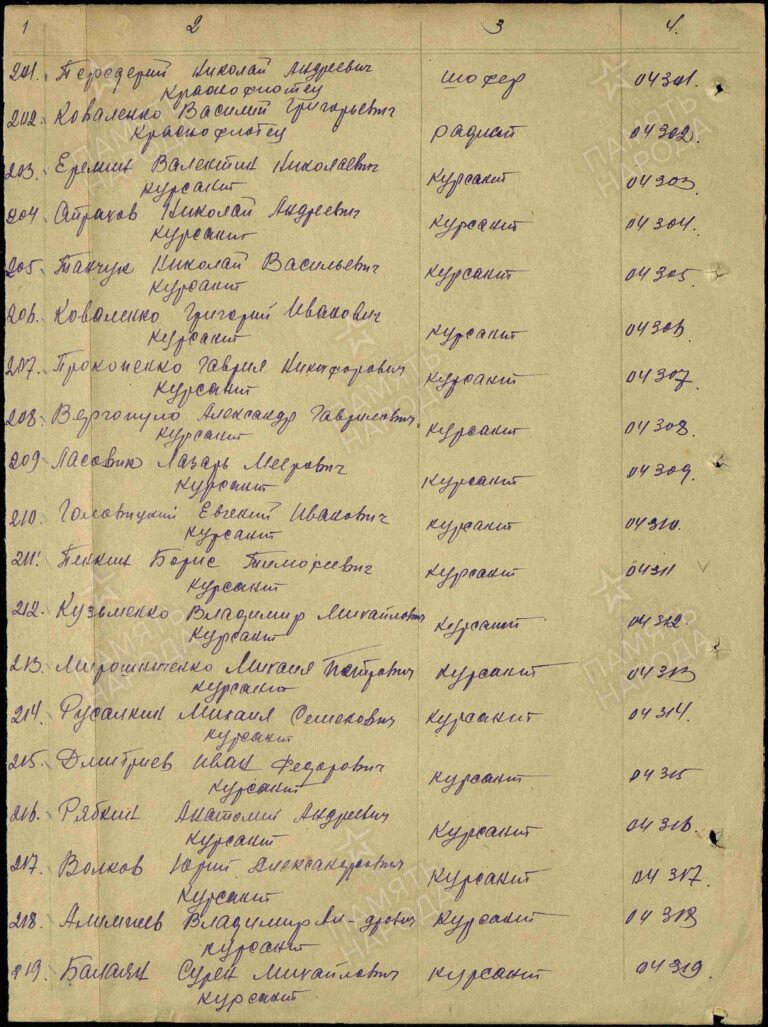 1 2 3 4.
201. Передерий Николай Андреевич шофер 04301.
краснофлотец
202. Коваленко Василий Григорьевич радист 04302.
краснофлотец
203. Еремин Валентин Николаевич курсант 04303
курсант
204 Страхов Николай Андреевич курсант 04304.
курсант
205. Танчук Николай Васильевич курсант 04305
курсант
206. Коваленко Григорий Иванович курсант 04306
курсант
207. Прокопенко Гаврил Никифорович курсант 04307
курсант
208. Вергопуло Александр Гаврилович курсант 04308
курсант
209 Ласовик Лазарь Меерович курсант 04309.
курсант
210. Головицкий Евгений Иванович курсант 04310.
курсант
211. Пенкин Борис Тимофеевич курсант 04311
курсант
212. Кузьменко Владимир Михайлович курсант 04312
курсант
213. Мирошниченко Михаил Петрович курсант 04313
курсант
214. Русалкин Михаил Семенович курсант 04314.
курсант
215. Дмитриев Иван Федорович курсант 04315
курсант
216. Рябкин Анатолий Андреевич курсант 04316
курсант
217. Волков Юрий Александрович курсант 04317.
курсант
218. Владимир Ал-дрович курсант 04318
курсант
219. Балаян Сурен Михайлович курсант 04319.
курсант
ПАМЯТЬ
НАРОДА